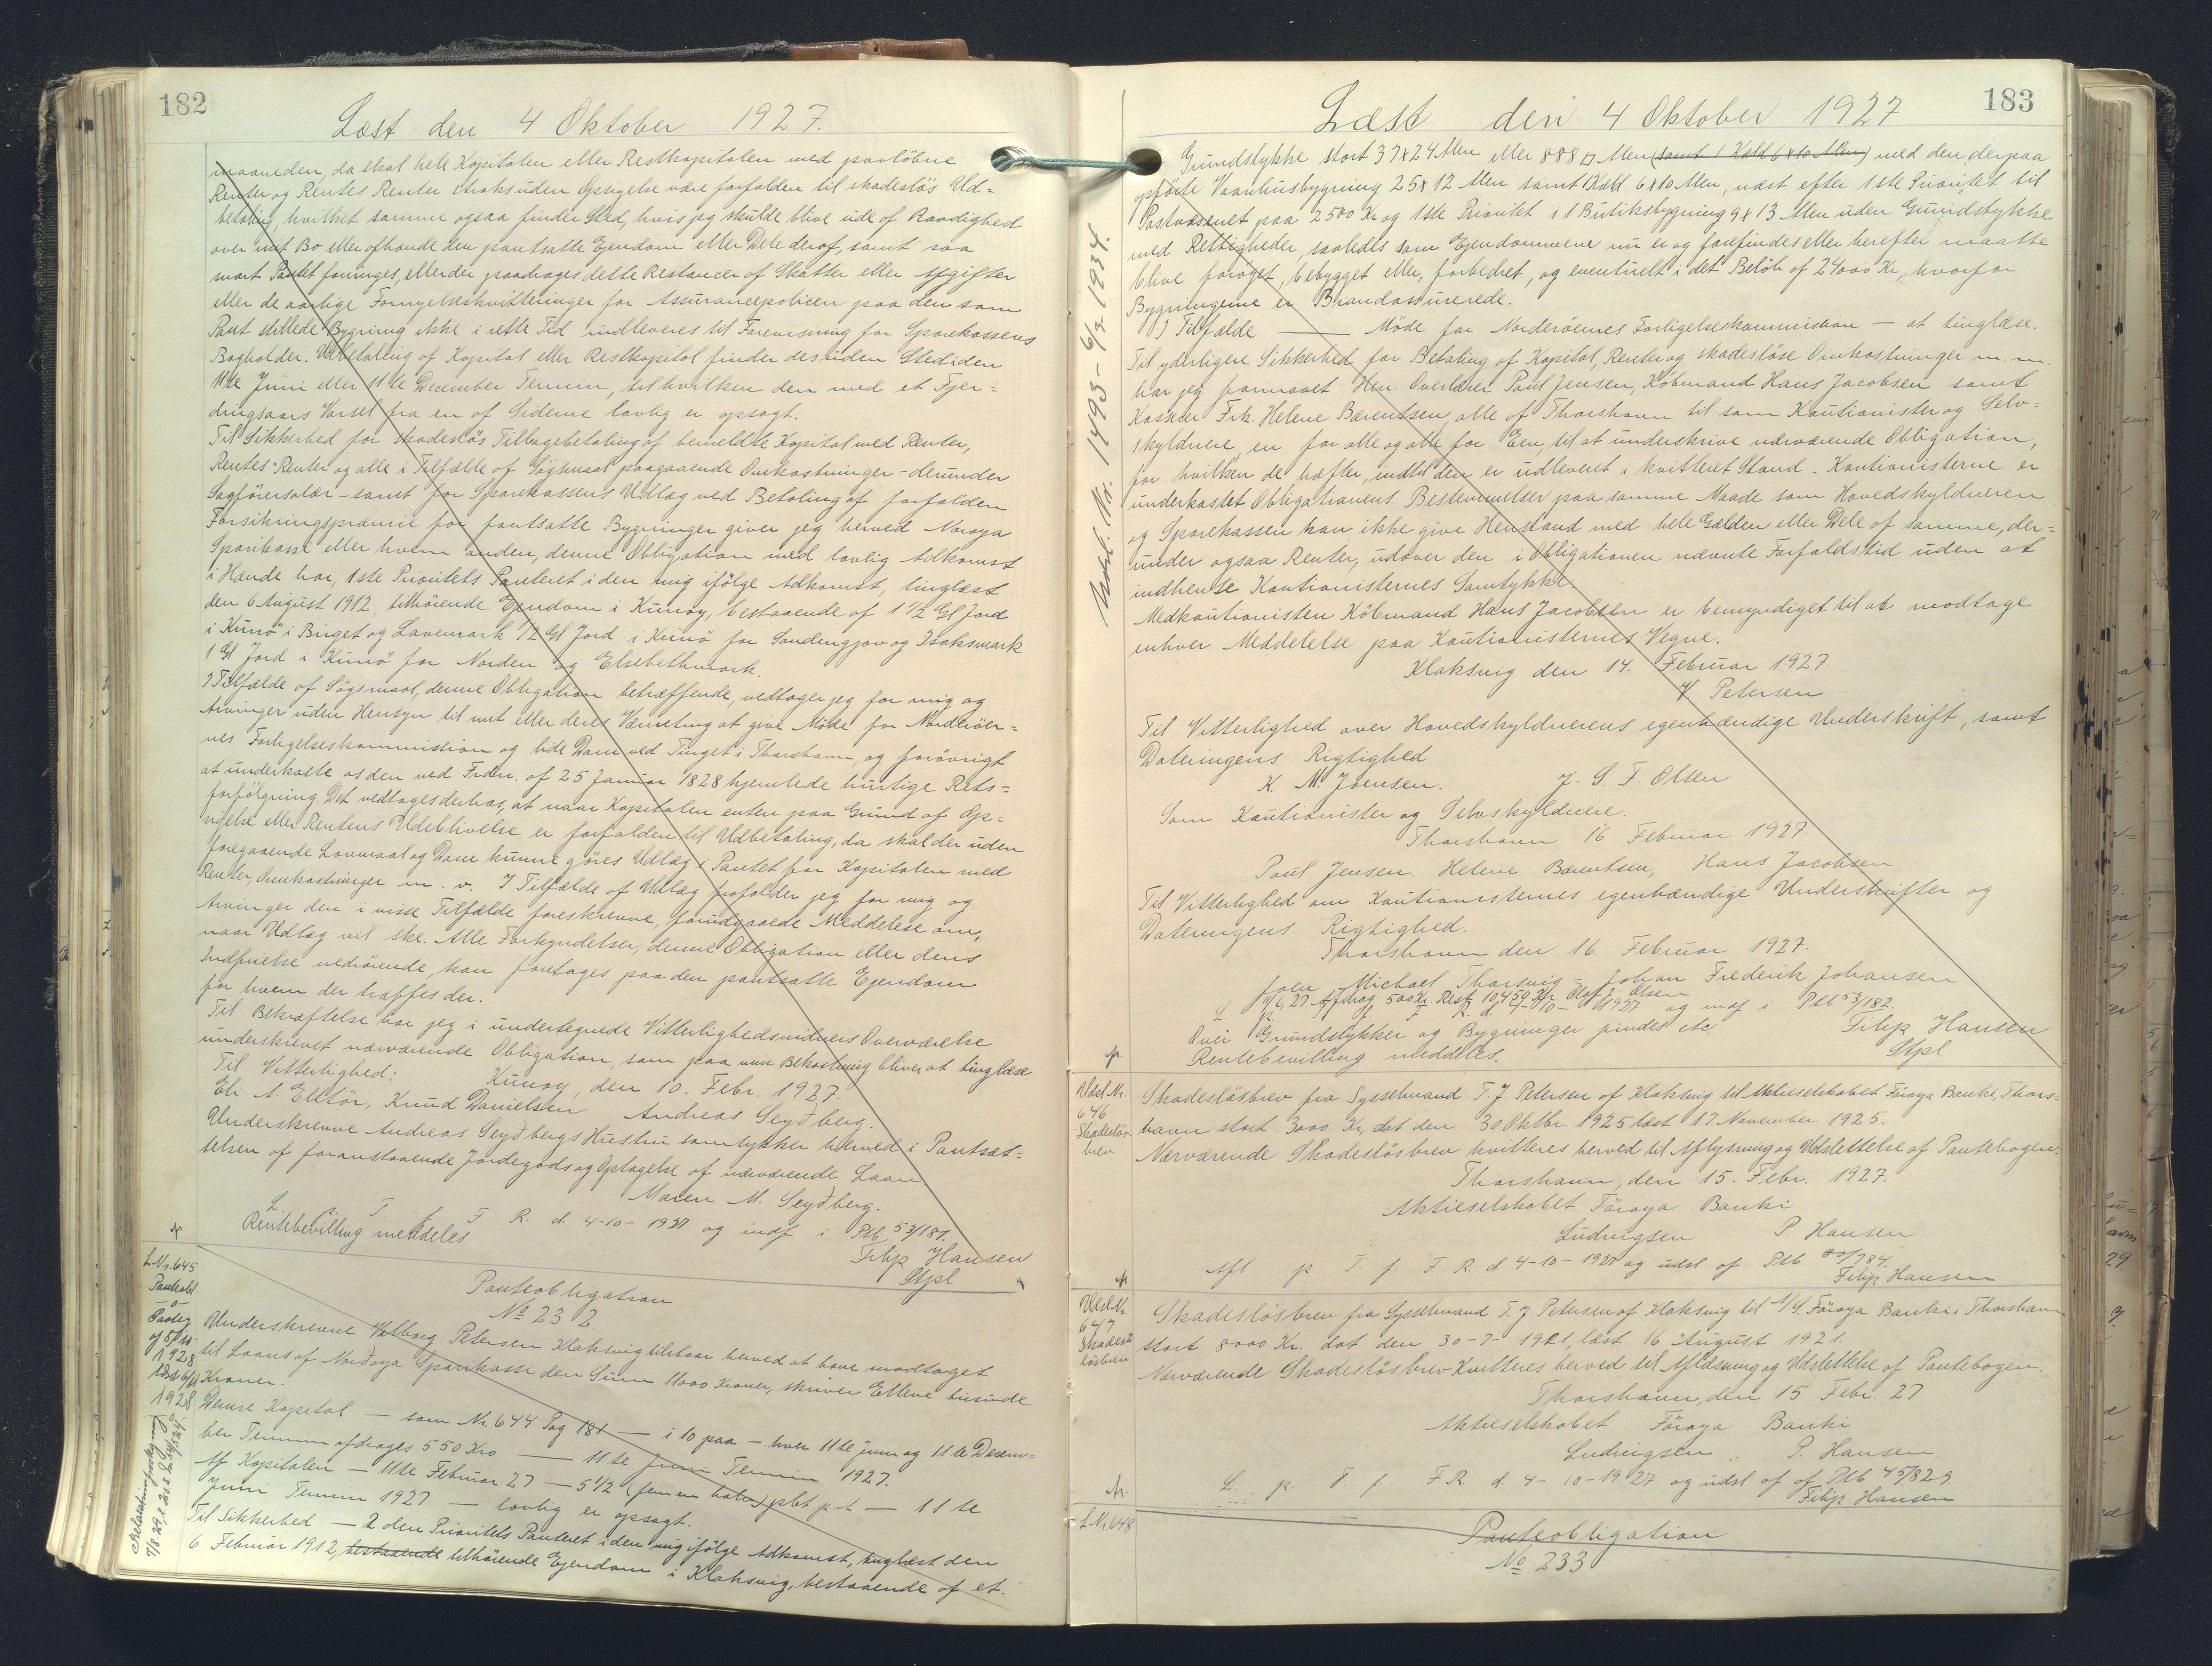 182
Læst den 4 Oktober 1927.
maaneden, da skal hele Kapitalen eller Restkapitalen med paaløbne
Renter og Rentes Renter straks uden Opsigelse være forfalden til skadesløs Ud=
betaling, hvilket samme ogsaa finder Sted, hvis jeg skulde blive ude af Raadighed
over mit Bo eller afhænde den pantsatte Ejendom eller Dele deraf, samt saa
snart Pantet forringes, eller der paadrages dette Restancer af Skatter eller Afgifter
eller de aarlige Fornyelseskvitteringer for Assurancepolicen paa den som
Pant stillede Bygning ikke i rette Tid indleveres til Forevisning for Sparekassens
Bogholder. Udbetaling af Kapital eller Restkapital finder desuden Sted i den
11te Juni eller 11te December Termin, til hvilken den med et Fjer=
dingsaars Varsel fra en af Siderne lovlig er opsagt.
Til Sikkerhed for skadesløs Tilbagebetaling af bemeldte Kapital med Renter,
Rentes Renter og alle i Tilfælde af Søgsmaal paagaaende Omkostninger - derunder
Sagførersalær - samt for Sparekassens Udlæg ved Betaling af forfalden
Forsikringspræmie for pantsatte Bygninger giver jeg herved Noroya
Sparikassi eller hvem anden, denne Obligation med lovlig Adkomst
i Hænde har, 1ste Prioritets Panteret i den mig ifølge Adkomst, tinglæst
den 6 August 1912, tilhørende Ejendom i Kunoy, bestaaende af 1 1/2 Gl Jord
i Kunø i Biiget og Lavemark 1/2 Gl Jord i Kunø for Sondengjov og Isaksmark
1 Gl Jord i Kunø for Norden og Elsebethmark.
I Tilfælde af Søgsmaal, denne Obligation betræffende, vedtager jeg for mig og
Arvinger uden Hensyn til mit eller deres Værneting at give Møde for Nordreøer=
nes Forligelseskommission og lide Dom ved Tinget i Thorshavn, og forøvrigt
at underkaste os den ved Frdn. af 25 Januar 1828 hjemlede hurtige Rets=
forfølgning. Det vedtages derhos, at naar Kapitalen enten paa Grund af Op=
sigelse eller Rentens Udeblivelse er forfalden til Udbetaling, da skal der uden
foregaaende Lovmaal og Dom kunne gøres Udlæg i Pantet for Kapitalen med
Renter, Omkostninger m. v. I Tilfælde af Udlæg frafalder jeg for mig og
Arvinger den i visse Tilfælde foreskrevne, forudgaaede Meddelelse om,
naar Udlæg vil ske. Alle Forkyndelser, denne Obligation eller dens
Indfrielse vedrørende, kan foretages paa den pantsatte Ejendom
for hvem der træffes der.
Til Bekræftelse har jeg i undertegnede Vitterlighedsvidners Overværelse
underskrevet nærværende Obligation, som paa min Bekostning bliver at tinglæse
Til Vitterlighed: Kunoy, den 10. Febr. 1927.
Eli A. Elttør, Knud Danielsen Andreas Seyðberg.
Underskrevne Andreas Seyðbergs Hustru samtykker herved i Pantsæt=
telsen af foranstaaende Jordegods og Optagelse af nærværende Laan
Maren M. Seyðberg.
L. p. T. f. F R. d. 4-10-1927 og indf i Ptb 53/181.
Rentebevilling meddeles
Filip Hansen
Stpl
L Nr. 645
Panteobl
Pantebligation
No 232.
Underskrevne Valborg Petersen Klaksvig tilstaar herved at have modtaget
til Laans af Norðoya Sparikassi den Sum 11000 Kroner, skriver Elleve tusinde
Kroner.
Denne Kapital — som Nr. 644 Pag 181 — i 10 paa — hver 11te juni og 11te Decem=
ber Termin afdrages 550 Kro — 11te Juni Termin 1927.
Af Kapitalen — 11te Februar 27 — 5 1/2 (fem en halv) pCt. p.t — 11te
Juni Termin 1927 — lovlig er opsagt.
Til Sikkerhed — 2den Prioritets Panteret i den mig ifølge Adkomst, tinglæst den
6 Februar 1912, bestaaende tilhørende Ejendom i Klaksvig, bestaaende af et.
183
Læst den 4 Oktober 1927
Udsl. Nr. 1493 - 6/3-1934.
Grundstykke stort 37x24 Alen eller 888 □ Alen (samt 1 Kold 6x10 Alen) med den derpaa
opførte Vaanhusbygning 25x12 Alen samt 1 Kold 6x10 Alen, næst efter 1ste Prioritet til
Postvæsenet paa 2500 Kr og 1ste Prioritet i 1 Butiksbygning 9x13 Alen uden Grundstykke
med Rettigheder, saaledes som Ejendommene nu er og forefindes eller herefter maatte
blive forøget, bebygget eller, forbedret, og eventuelt i det Beløb af 24000 Kr, hvorfor
Bygningerne er Brandassurerede.
I Tilfælde — Møde for Norderøernes Forligelseskommission — at tinglæse.
Til yderligere Sikkerhed for Betaling af Kapital, Renter og skadesløse Omkostninger m. m.
har jeg formaaet Hrr. Overlærer Paul Jensen, Købmand Hans Jacobsen samt
Kasserer Frk. Helene Bærentsen, alle af Thorshavn til som Kautionister og Selv=
skyldnere, en for alle og alle for Een, til at underskrive nærværende Obligation,
for hvilken de hæfter, indtil den er udleveret i kvitteret Stand. Kautionisterne er
underkastet Obligationens Bestemmelser paa samme Maade som Hovedskyldneren
og Sparekassen kan ikke give Henstand med hele Gælden eller Dele af samme, der=
under ogsaa Renter, udover den i Obligationen nævnte Forfaldstid uden at
indhente Kautionisternes Samtykke.
Medkautionisten Købmand Hans Jacobsen er bemyndiget til at modtage
enhver Meddelelse paa Kautionisternes Vegne.
Klaksvig den 14. Februar 1927.
V Petersen
Til Vitterlighed over Hovedskyldnerens egenhændige Underskrift, samt
Dateringens Rigtighed
K. M. Joensen. J. S. F. Olsen
Som Kautionister og Selvskyldnere.
Thorshavn 16 Februar 1927.
Paul Jensen. Helene Bærentsen, Hans Jacobsen
Til Vitterlighed om Kautionisternes egenhændige Underskrifter og
Dateringens Rigtighed.
Thorshavn den 16. Februar 1927.
Joen Michael Thorsvig - Johan Frederik Johansen
11/6.27 Afdrag 500 Kr. Rest 10,450 Kr. Oluf J. Olsen
L. p. T. f. F R. d. 4-10-1927 og indf i Ptb 53/182.
Over Grundstykker og Bygninger findes etc.
Filip Hansen
Rentebevilling meddeles.
Stpl
Udsl. Nr.
646
Skadesløs-
brev
Skadesløsbrev fra Sysselmand T. J. Petersen af Klaksvig til Aktieselskabet Føroya Banki, Thors=
havn stort 3000 Kr, dat den 30 Oktbr. 1925 læst 17 November 1925.
Nærværende Skadesløsbrev kvitteres herved til Aflysning og Udslettelse af Pantebogen.
Thorshavn, den 15. Febr. 1927.
Aktieselskabet Føroya Banki
Ludvigsen P. Hansen
Afl p. T. f F R. d 4-10-1927 og udsl af Ptb
Filip Hansen
Udsl. Nr
647
Skades
løsbrev
Skadesløsbrev fra Sysselmand T. J Petersen af Klaksvig til A/S. Føroya Banki i Thorshavn
stort 8000 Kr. dat den 30-7-1921, læst 16 August 1921.
Nærværende Skadesløsbrev Kvitteres herved til Aflæsning og Udslettelse af Pantebogen.
Thorshavn, den 15 Febr. 27
Aktieselskabet Føroya Banki
Ludvigsen P. Hansen
L. p. T. f. F R. d. 4-10-1927 og udsl af af Ptb 45/829
Filip Hansen
L Nr. 648
Panteobligation
No 233